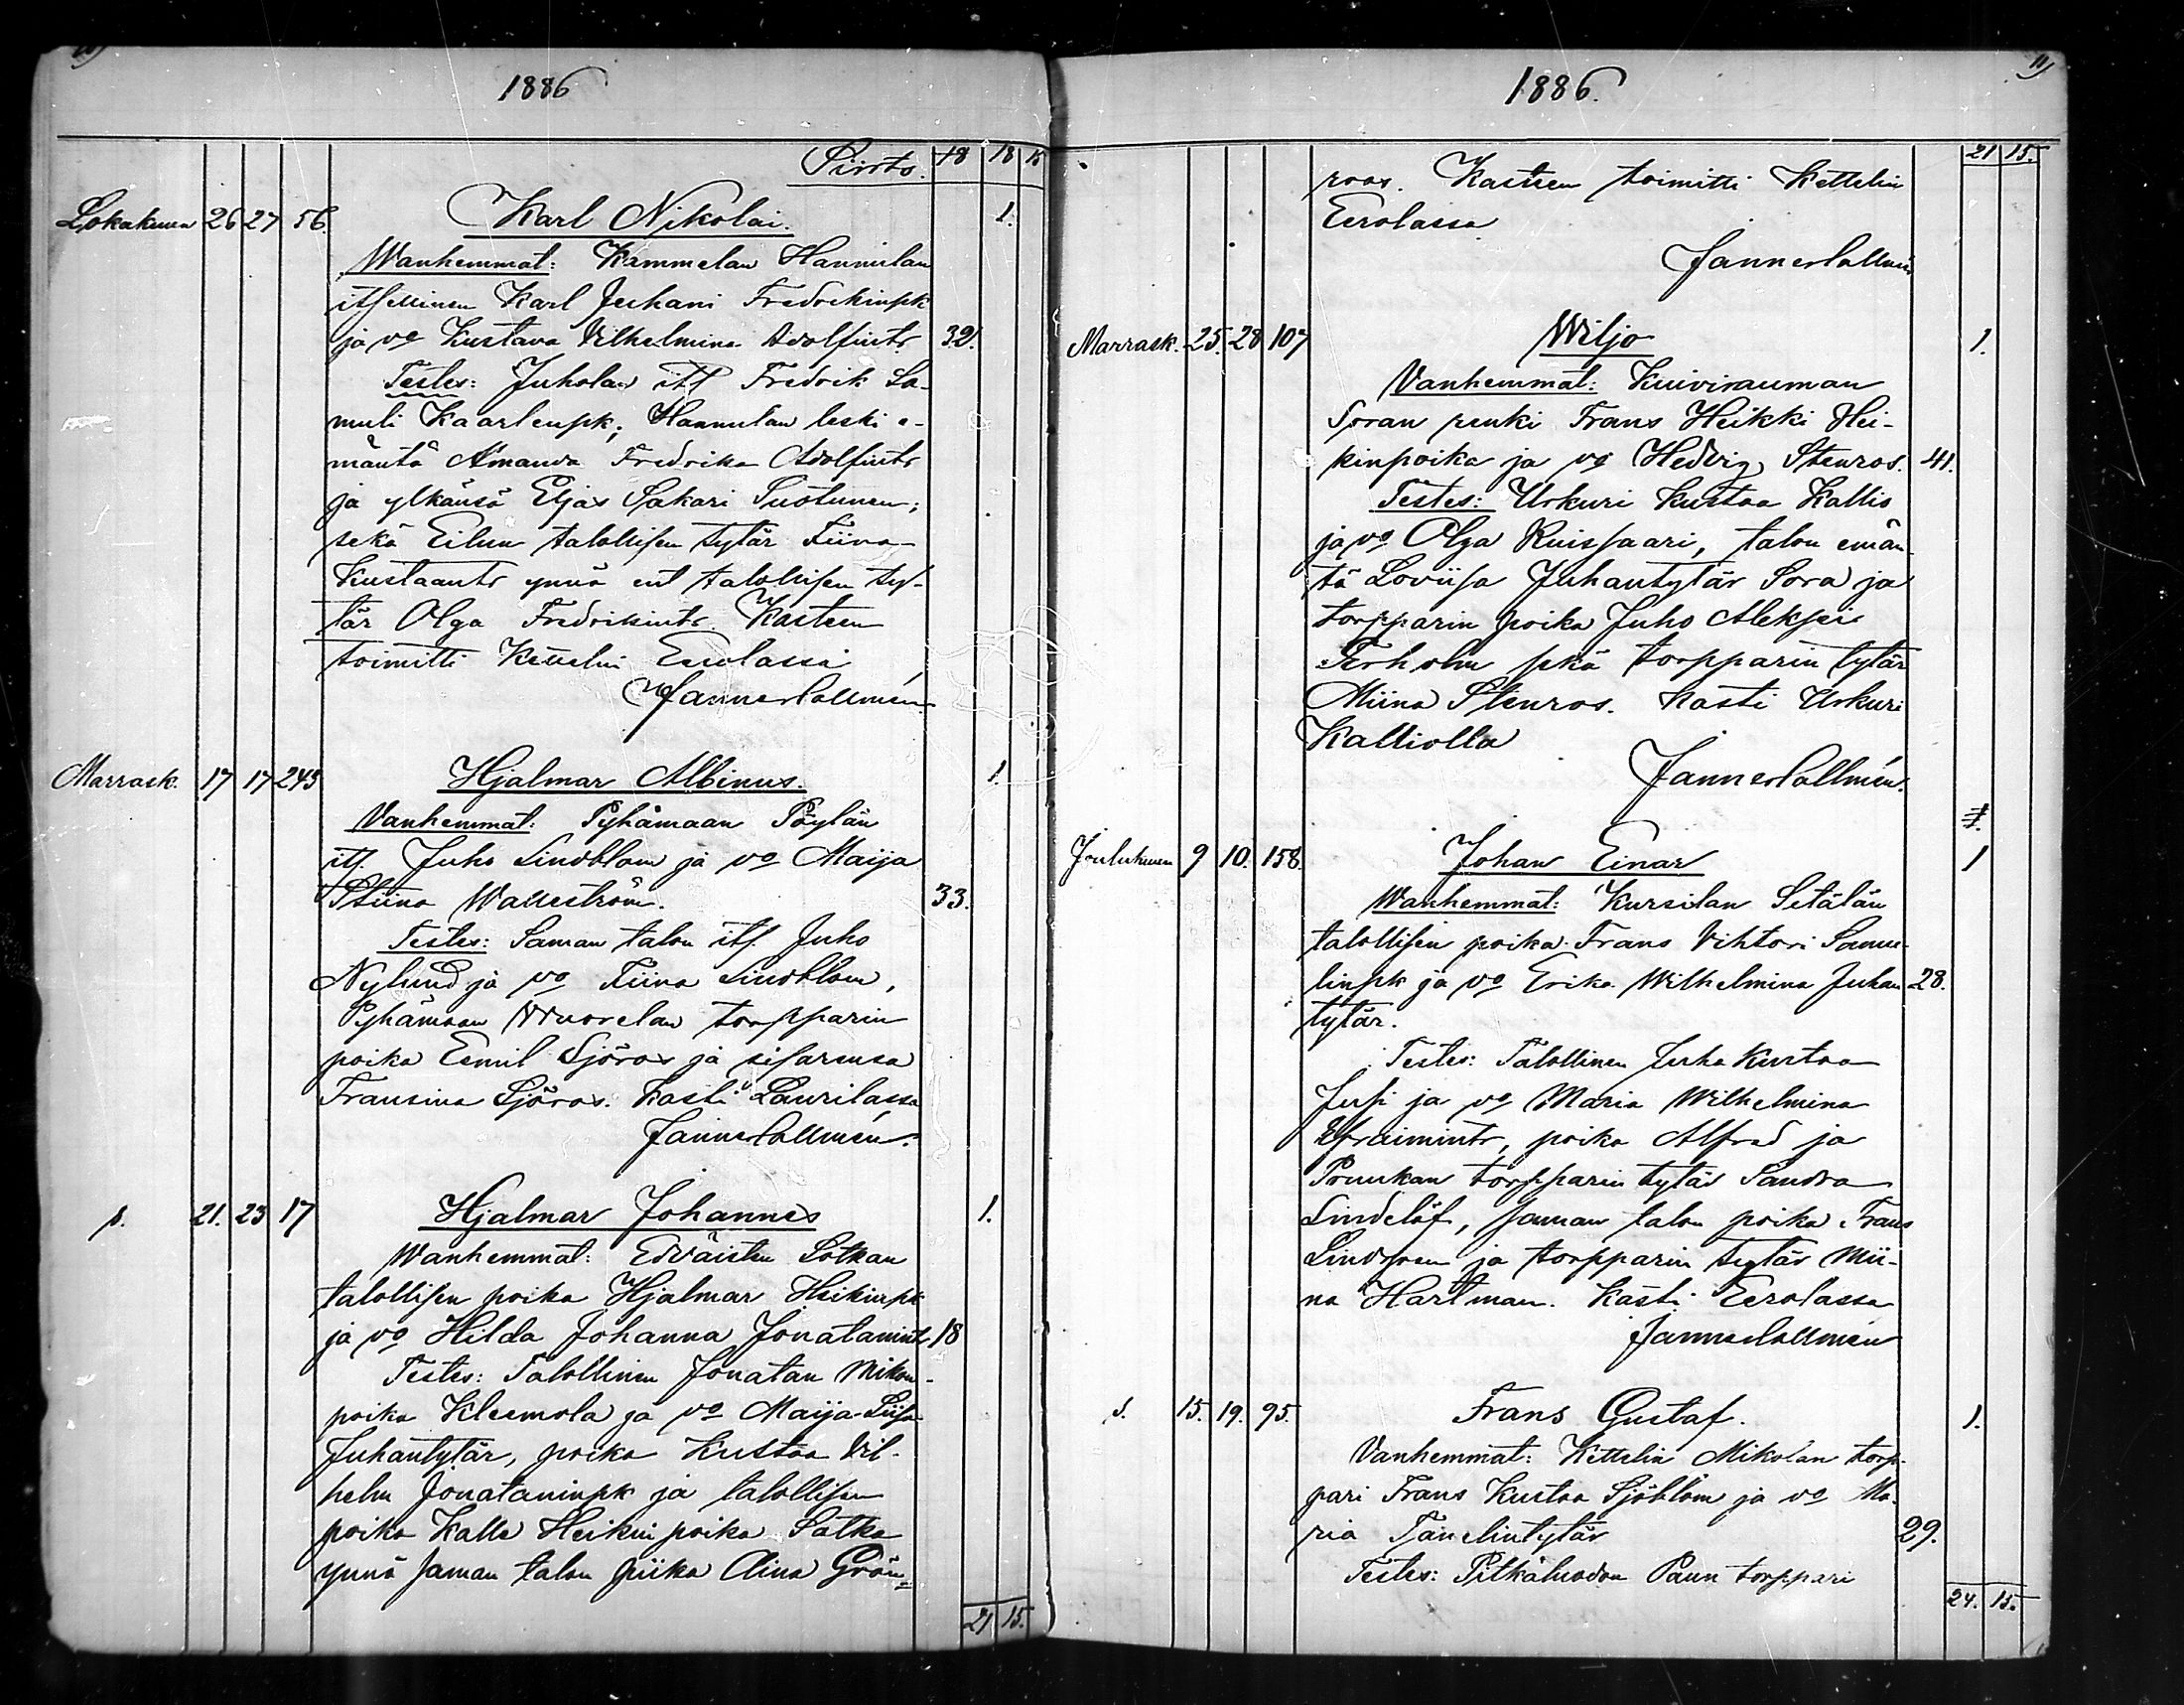 1886
Siirto. 18 18 15
Lokakuun 26 27 56. Karl Nikolai. 1.
Wanhemmat: Kammelan Hannulan
itsellinen Karl Juhani Fredrikinpk
ja vo Kustava Vilhelmina Adolfintr. 32.
Testes: Juholan its Fredrik Sa-
muli Kaarlenpk; Hannulan leski e-
mäntä Amanda Fredrika Adolfintr
ja ylkänsä Eljas Sakari Suotunen;
sekä Eilun talollisen tytär Fiina
Kustaantr ynnä ent talollisen ty-
tär Olga Fredrikintr. Kasteen
toimitti Kettelin Eerolassa
Janne Sallmén.
Marrask. 17 17 243 Hjalmar Albinus. 1.
Vanhemmat: Pyhämaan Pöylän
its. Juho Lindblom ja vo Maija
Stiina Wallström. 33.
Testes: Saman talon its. Juho
Nylund ja vo Fiina Lindblom,
Pyhämaan Wuorelan torpparin
poika Eemil Sjöros ja sisarensa
Fransina Sjöros. Kasti Laurilassa
Janne Sallmén.
s. 21. 23 17 Hjalmar Johannes 1.
Wanhemmat: Edväisten Sotkan
talollisen poika Hjalmar Heikinpk
ja vo Hilda Johanna Jonatanintr 18
Testes: Talollinen Jonatan Mikon-
poika Kleemola ja vo Maija-Liisa
Juhantytär, poika Kustaa Vil-
helm Jonataninpk ja talollisen
poika Kalle Heikinpoika Satka
ynnä saman talon piika Aina Grön-
21 15.
11)
1886.
21 15.
roos. Kasteen toimitti Kettelin
Eerolassa
Janne Sallmén
Marrask. 25. 28 107 Wiljo 1.
Vanhemmat: Kuivirauman
Soran renki Frans Heikki Hei-
kinpoika ja vo Hedvig Stenros. 41.
Testes: Urkuri Kustaa Kallio
ja vo Olga Ruissaari, talon emän-
tä Loviisa Juhantytär Sora ja
torpparin poika Juho Aleksi
Terholm sekä torpparin tytär
Miina Stenros. Kasti Urkuri
Kalliolla
Janne Sallmén.
Joulukuun 9 10. 158. Johan Einar 1
Wanhemmat: Kursilan Setälän
talollisen poika Frans Vihtori Samue-
linpk ja vo Erika Wilhelmina Juhan 28.
tytär.
Testes: Talollinen Juha Kustaa
Jusi ja vo Maria Wilhelmina
Efraimintr, poika Alfred ja
Pruukan torpparin tytär Sandra
Lindelöf, saman talon poika Frans
Lindroos ja torpparin tytär Mii-
na Hartman. Kasti Eerolassa
Janne Sallmén
s. 15. 19. 95. Frans Gustaf. 1.
Vanhemmat: Kettelin Mikolan torp-
pari Frans Kustaa Sjöblom ja vo Ma-
ria Tanelintytär 29.
Testes: Pitkäluodon Paun torppari
24. 15.